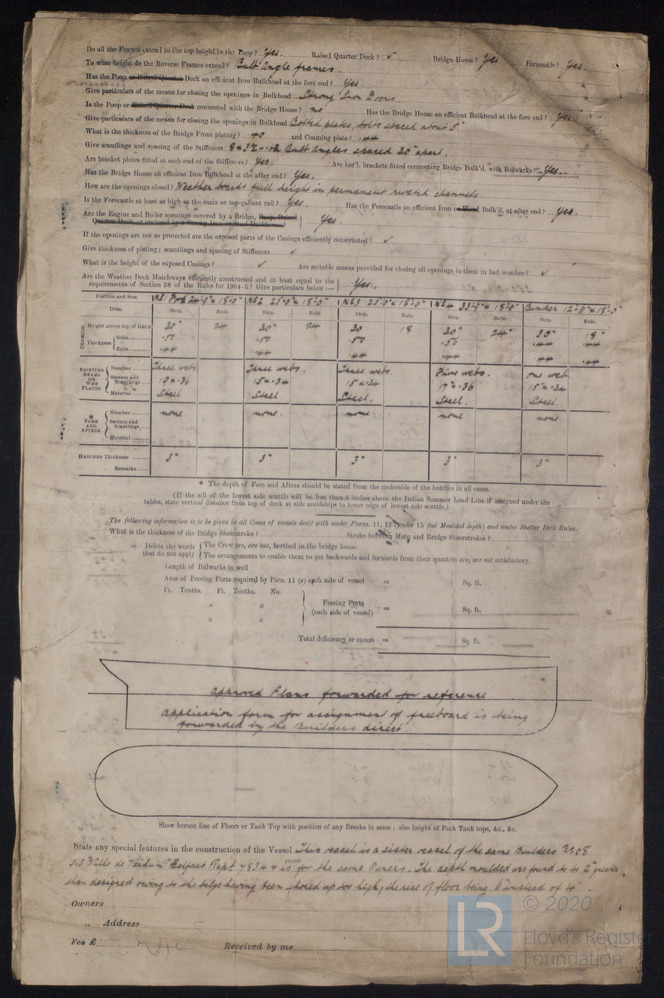 Do all the Frames extend to the top height in the Poop? Yes. Raised Quarter Deck? ✓ Bridge House? Yes Forecastle? Yes.
To what height do the Reverse Frames extend? Bulb angle frames.
Has the Poop or Raised Quarter Deck an efficient Iron Bulkhead at the fore end? Yes
Give particulars of the means for closing the openings in Bulkhead Strong Iron Doors
Is the Poop or Raised Quarter Deck connected with the Bridge House? no Has the Bridge House an efficient Bulkhead at the fore end? Yes
Give particulars of the means for closing the openings in Bulkhead Bolted plates, bolts spaced about 5"
What is the thickness of the Bridge Front plating? .40 and Coaming plate? .44
Give scantlings and spacing of the Stiffeners Bulb Angles spaced 30" apart.
Are bracket plates fitted at each end of the Stiffeners? Yes. Are hor'l. brackets fitted connecting Bridge Bulk'd. with Bulwarks? Yes.
Has the Bridge House an efficient Iron Bulkhead at the after end? Yes.
How are the openings closed? Weather boards full height in permanent riveted channels.
Is the Forecastle at least as high as the main or top-gallant rail? Yes Has the Forecastle an efficient Iron or Wood Bulk'd. at after end? Yes.
Are the Engine and Boiler openings covered by a Bridge, Poop, Raised
Quarter Deck, Yes
If the openings are not so protected are the exposed parts of the Casings efficiently constructed? ✓
Give thickness of plating; scantlings and spacing of Stiffeners ✓
What is the height of the exposed Casings? ✓ Are suitable means provided for closing all openings in them in bad weather? ✓
Are the Weather Deck Hatchways efficiently constructed and at least equal to the
requirements of Section 28 of the Rules for 1904-5? Give particulars below:— Yes.
Position and Size No1 Fore 24'-0" x 18'-0" No2 No3 No4 Bunker
Item. Ship. Rule. Ship. Rule. Ship. Rule. Ship. Rule. Ship. Rule.
COAMINGS Height above top of Deck 30" 24 30" 24 30 18 30" 24" 30" 18"
Thickness Sides .50 .50 .50 .50 .44 .44
Ends .44 .44 .44 .44 .44 .44
SHIFTING BEAMS OR WEB PLATES Number Three webs Three webs. Three webs Five webs. one web
Section and Scantlings 19 x .36 15 x .34 15 x .34 17 x .36 15 x .34
Material Steel Steel Steel. Steel. Steel.
* FORE AND AFTERS Number none none. none. none none
Section and Scantlings
Material
HATCHES Thickness 3" 3" 3" 3" 3"
Remarks
* The depth of Fore and Afters should be stated from the underside of the hatches in all cases.
(If the sill of the lowest side scuttle will be less than 6 inches above the Indian Summer Load Line if assigned under the
tables, state vertical distance from top of deck at side amidships to lower edge of lowest side scuttle.)
The following information is to be given in all Cases of vessels dealt with under Paras. 11, 12 (under 15 feet Moulded depth) and under Shelter Deck Rules.
What is the thickness of the Bridge Sheerstrake? Strake between Main and Bridge Sheerstrakes?
Delete the words that do not apply The Crew are, are not, berthed in the bridge house.
The arrangements to enable them to get backwards and forwards from their quarters are, are not satisfactory.
Length of Bulwarks in well
Area of Freeing Ports required by Para. 11 (e) each side of vessel = Sq. ft.
Ft. Tenths. Ft. Tenths. No.
× ×
× ×
Freeing Ports
(each side of vessel) = Sq. ft.
Total deficiency or excess = Sq. ft.
approved Plans forwarded for reference
application form for assignment of freeboard is being
forwarded by the Builders direct
Show hereon line of Floors or Tank Top with position of any Breaks in same; also height of Peak Tank tops, &c., &c.
State any special features in the construction of the Vessel This vessel is a sister vessel of the same Builders
Belfast Rept 7834 & is for the same Owners. The depth moulded was found to be 2" greater
than designed owing to the bilge having been shored up too high, the rise of floor being instead of 4".
Owners
„ Address
Fee £ Received by me
© 2020
LR
Lloyd's Register
Foundation